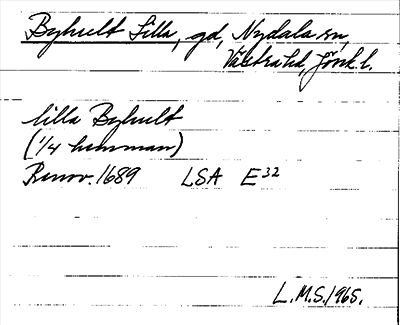 Byhult Lilla, gd, Nydala sn,
Västra hd, Jönk.l.
lilla Byhult
(1/4 hemman)
Renov. 1689 LSA E 32
L.M.S. 1965.